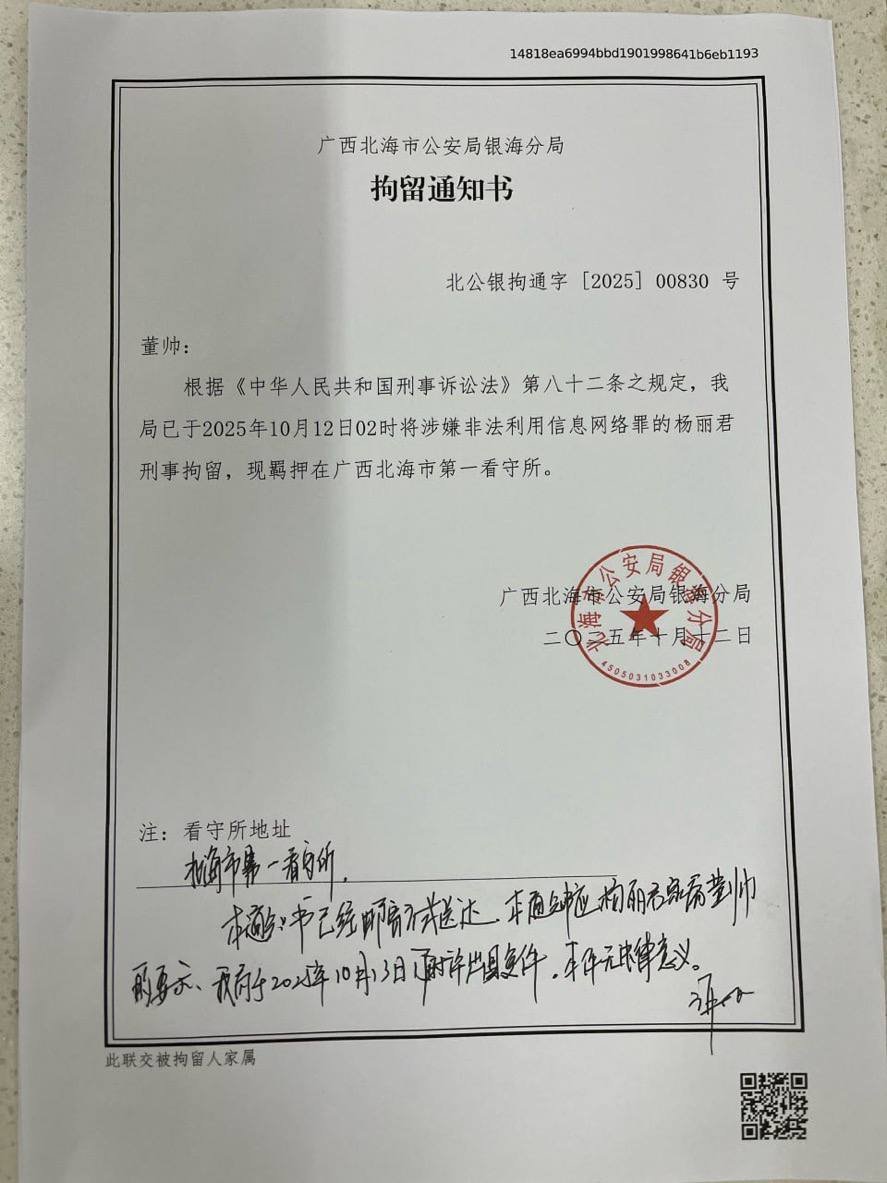 14818ea6994bbd1901998641b6eb1193
广西北海市公安局银海分局
拘留通知书
北公银拘通字［2025］00830 号
董帅：
根据《中华人民共和国刑事诉讼法》第八十二条之规定，我
局已于2025年10月12日02时将涉嫌非法利用信息网络罪的杨丽君
刑事拘留，现羁押在广西北海市第一看守所。
广西北海市公安局银海分局
二〇二五年十月十二日
北海市公安局银海分局
4505031033008
注：看守所地址
北海市第一看守所.
本通知书已经邮寄方式送达. 本通知书应杨丽君家属董帅
的要示、我局于2025年10月13日 复件. 本件无法律意义。
此联交被拘留人家属